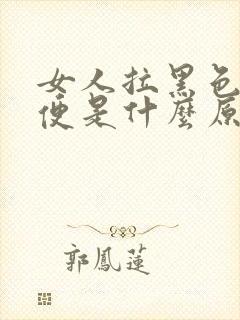 女人拉黑色
便是什麼原
郭鳳蓮